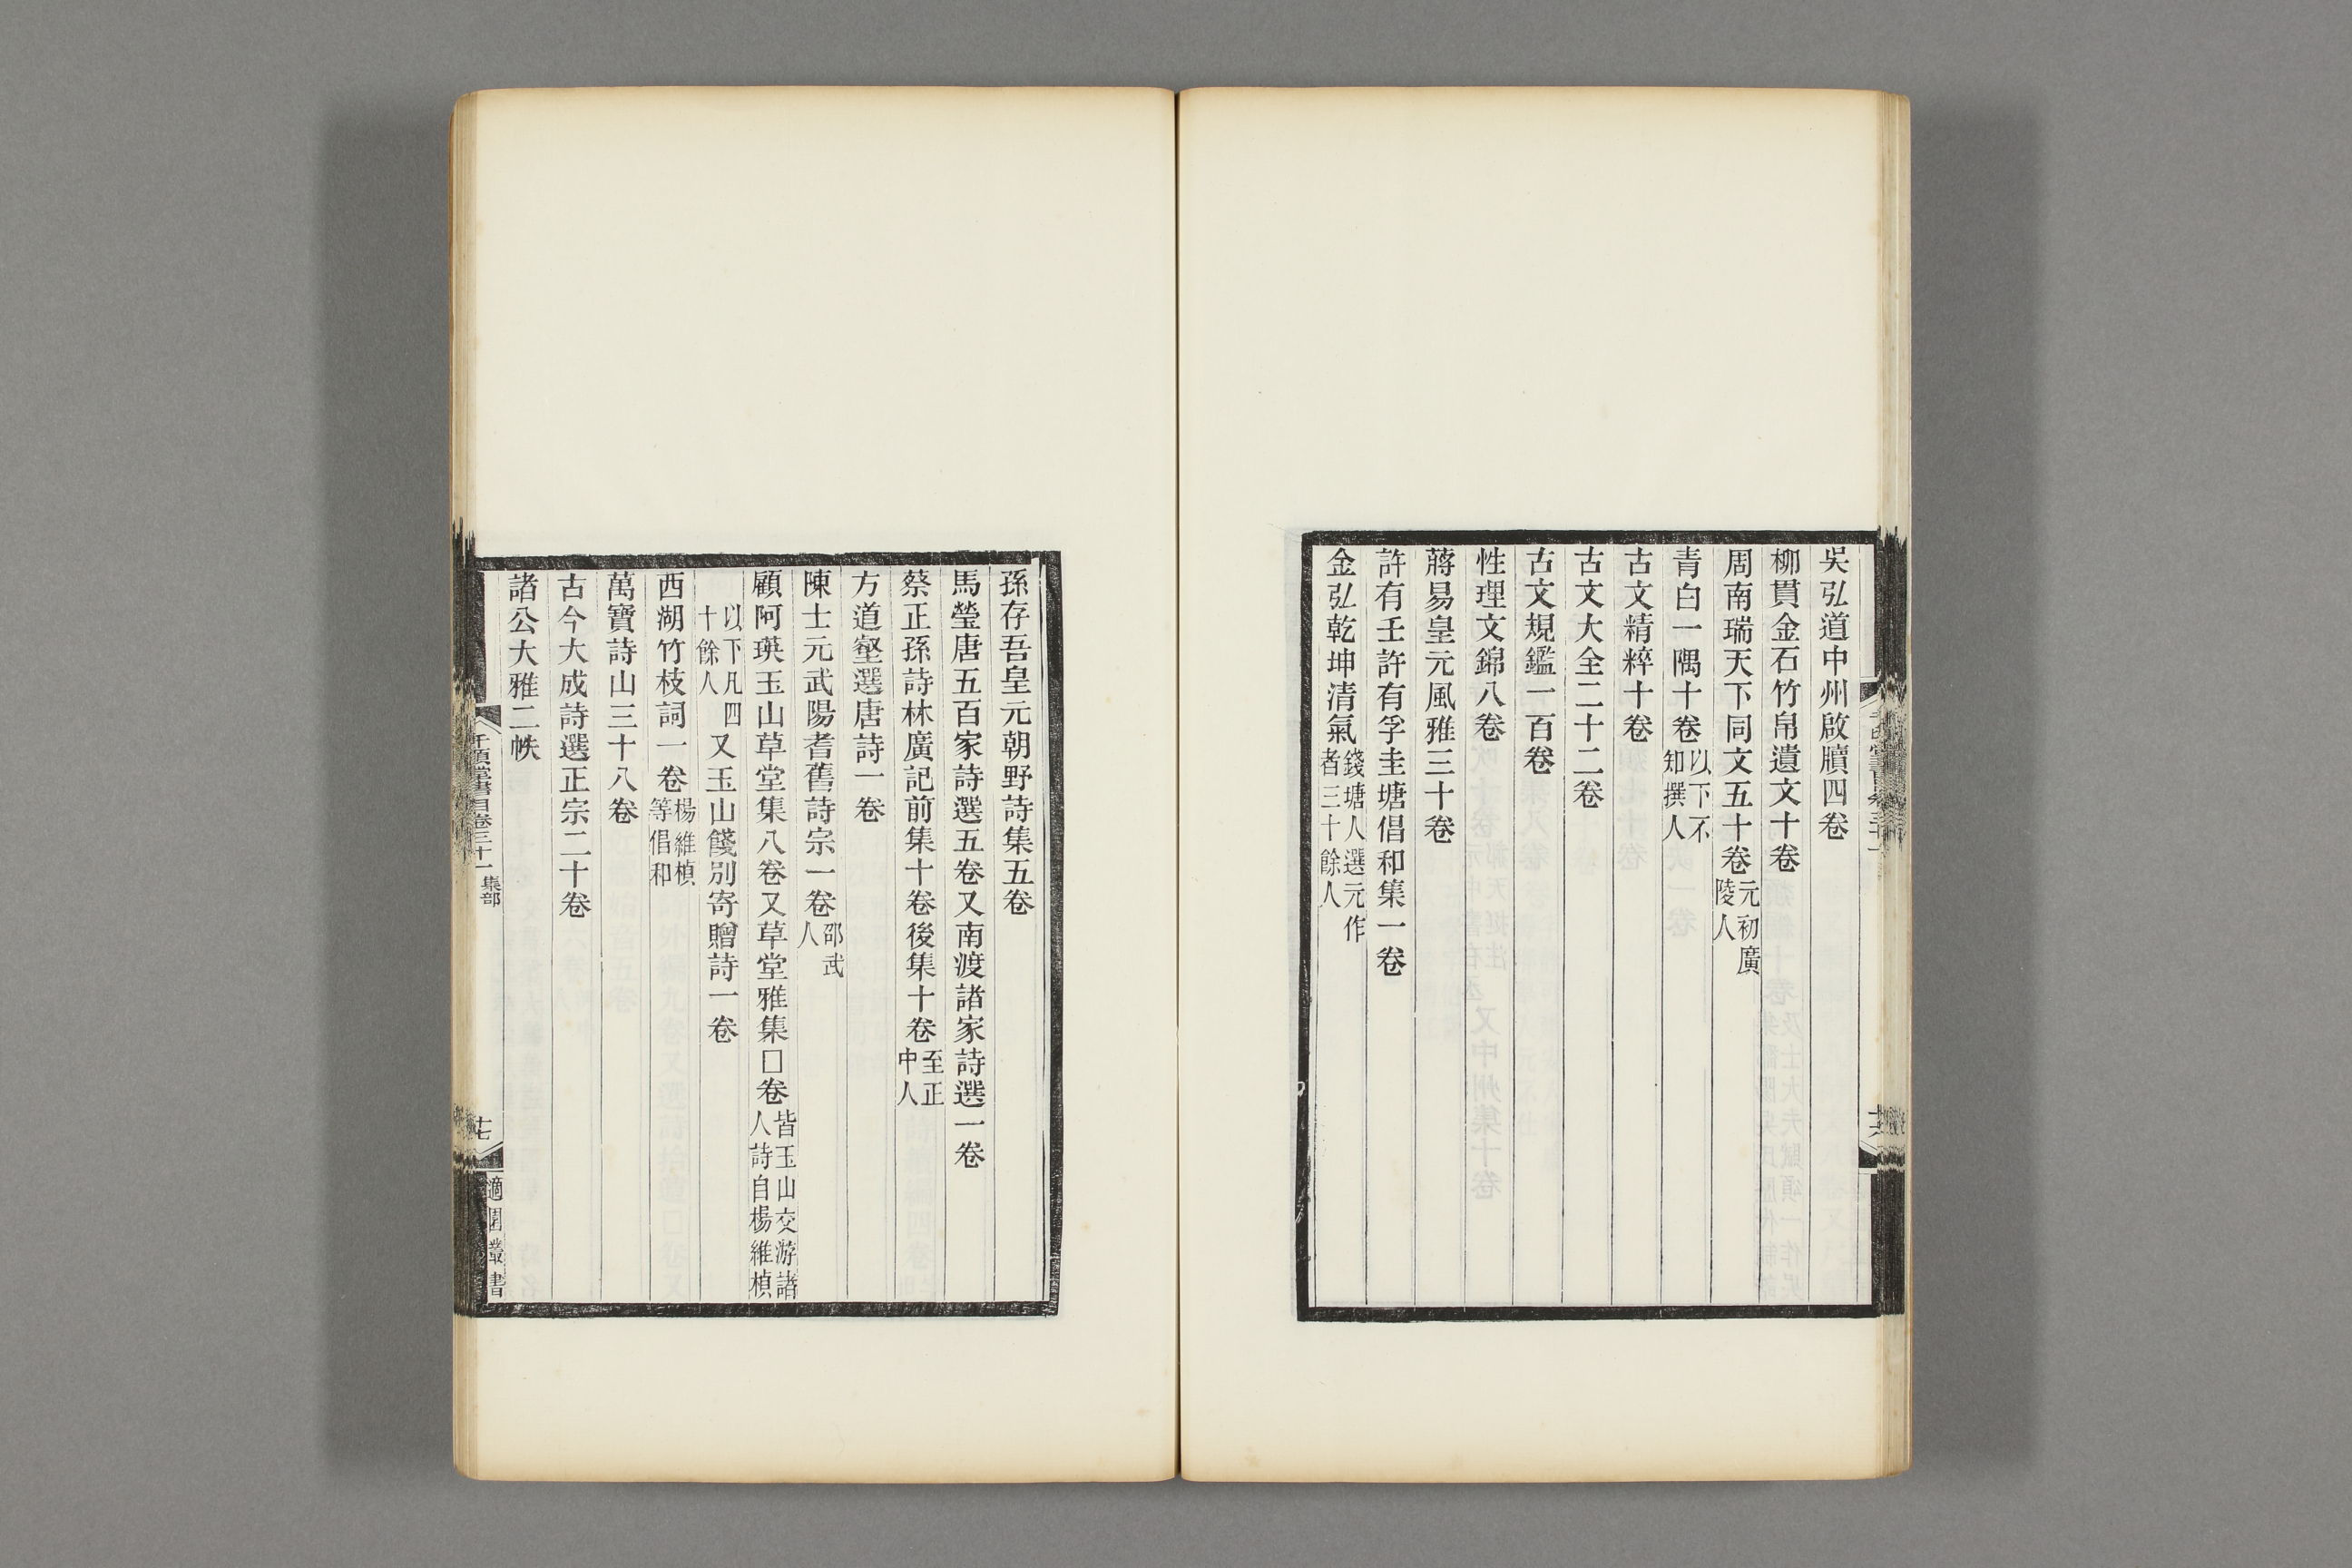 吳弘道中州啟牘四卷
柳貫金石竹帛遺文十卷
周南瑞天下同文五十卷元初廣陵人
青白一隅十卷以下不知撰人
古文精粹十卷
古文大全二十二卷
古文規鑑一百卷
性理文錦八卷
蔣易皇元風雅三十卷
許有壬許有孚圭塘倡和集一卷
金弘乾坤清氣錢塘人選元作者三十餘人
孫存吾皇元朝野詩集五卷
馬瑩唐五百家詩選五卷又南渡諸家詩選一卷
蔡正孫詩林廣記前集十卷後集十卷至正中人
方道壑選唐詩一卷
陳士元武陽耆舊詩宗一卷邵武人
顧阿瑛玉山草堂集八卷又草堂雅集□卷皆玉山交游諸人詩自楊維楨
以下凡四十餘人又玉山餞別寄贈詩一卷
西湖竹枝詞一卷楊維楨等倡和
萬寶詩山三十八卷
古今大成詩選正宗二十卷
諸公大雅二帙
千頃堂書目卷三十一 集部
十七
適園叢書